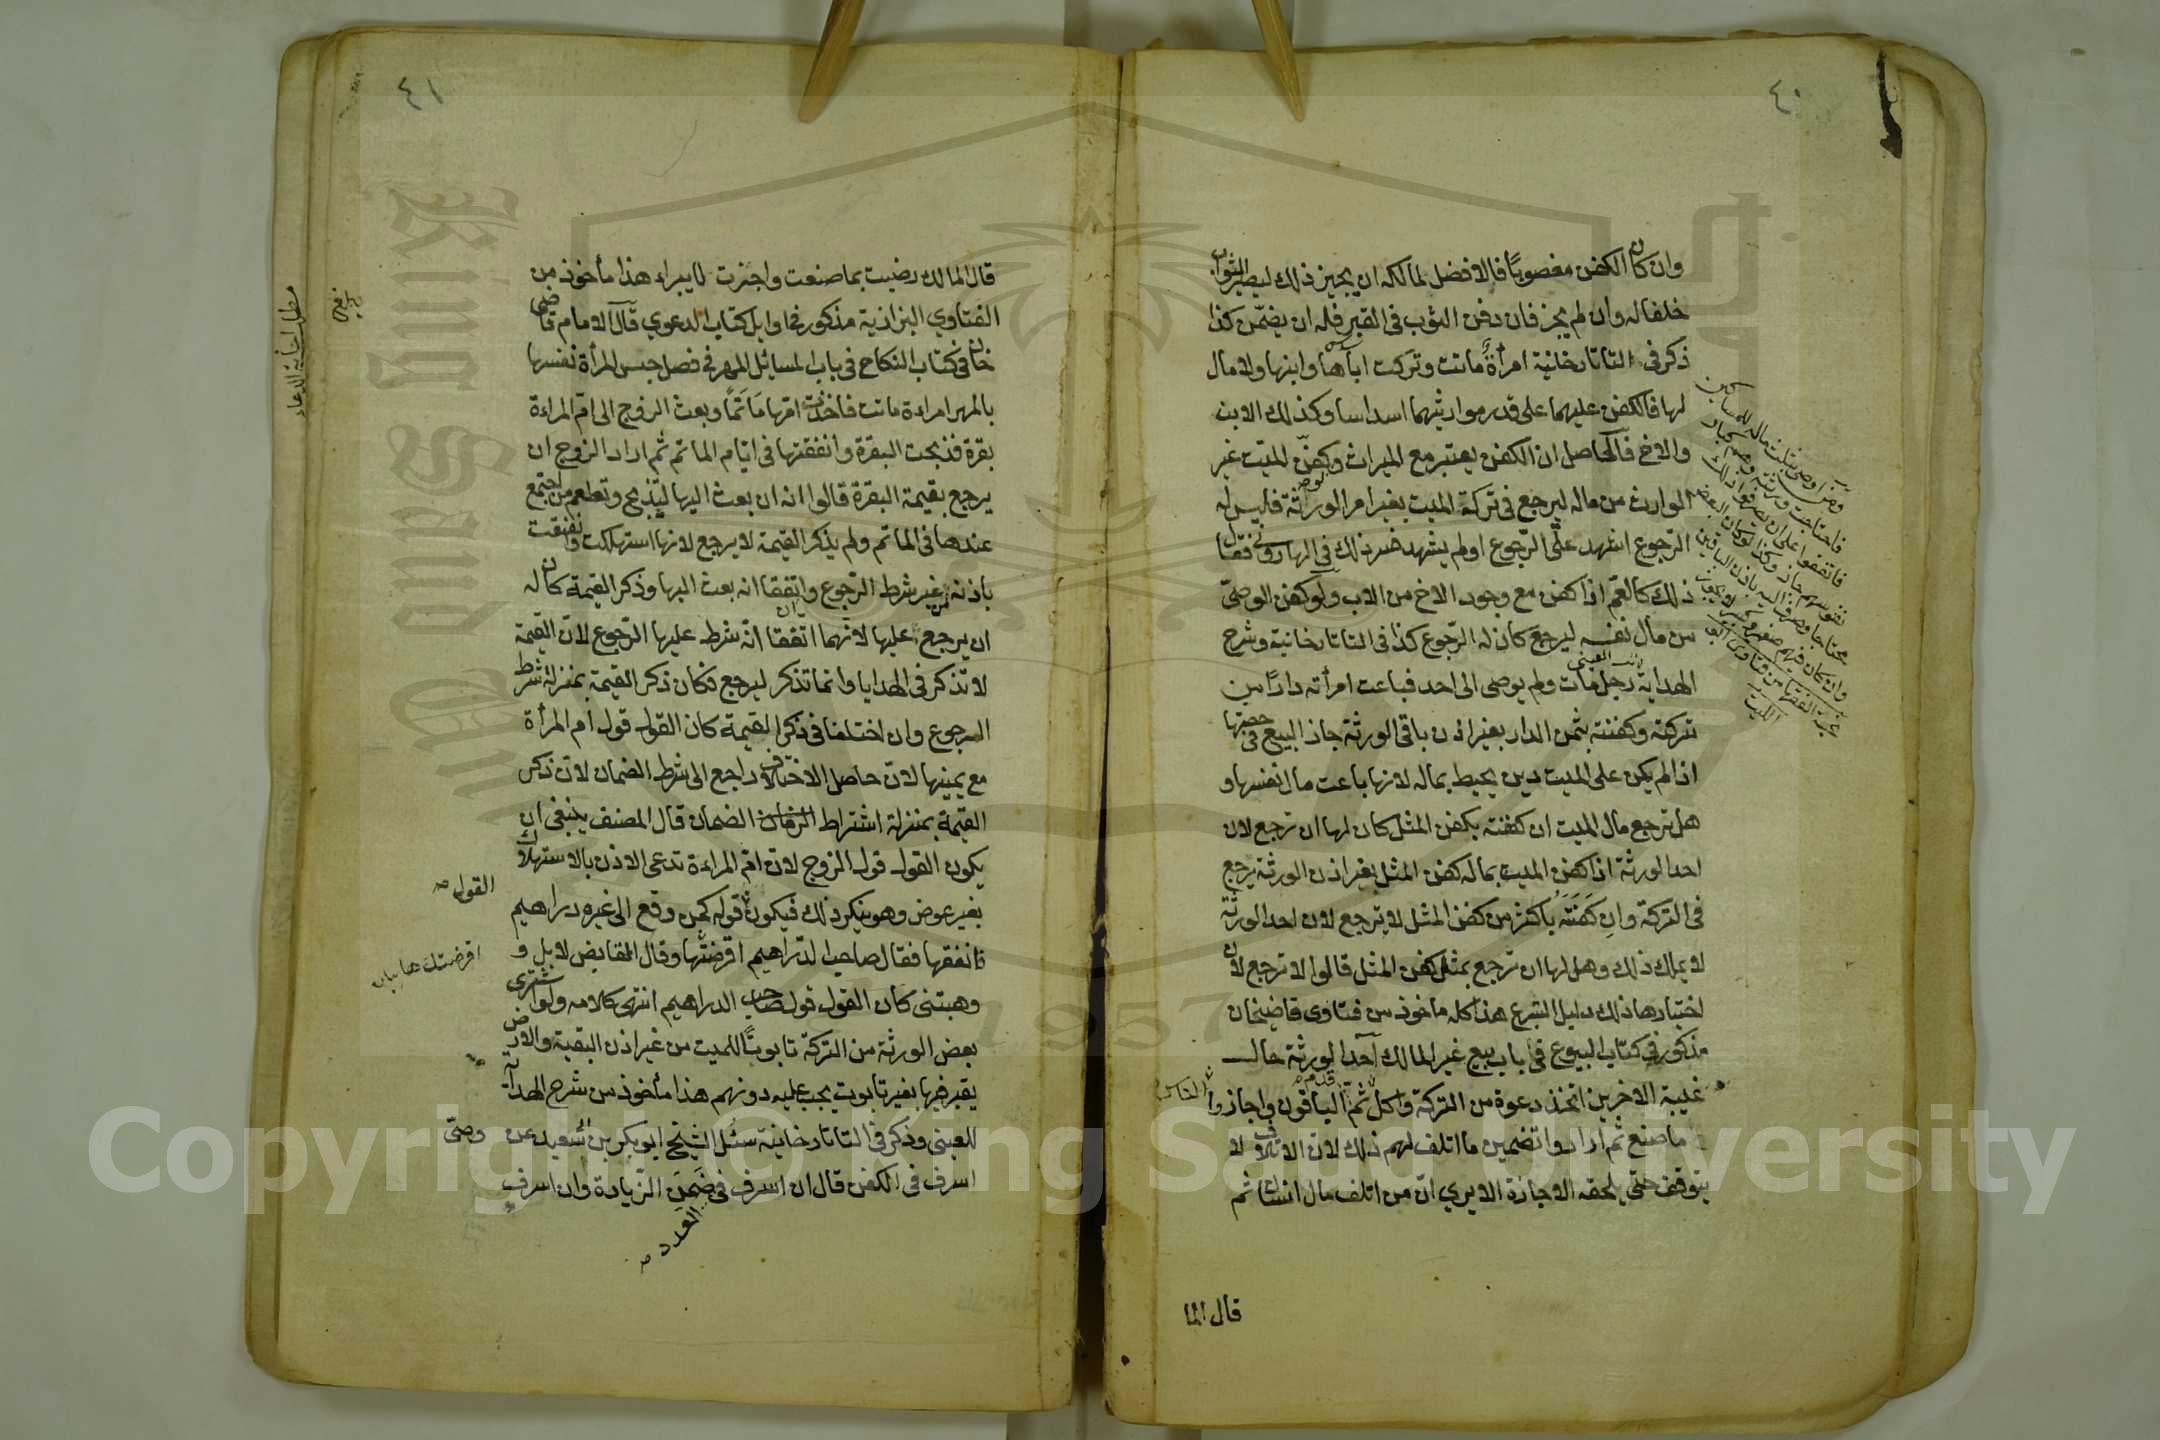 ٤٠
وان كان الكفن مغصوبا فالافضل لمالكه ان يجيز ذلك ليصير الثواب
خلفا له وان لم يجز فان دفن الثوب في القبر فله ان يضمّن كذا
ذكر في التاتارخانية امرأةٌ ماتت وتركت اباها وابنها ولا مال
لها فالكفن عليهما على قدر مواريثهما اسداسا وكذلك الابن
والاخ فالحاصل ان الكفن يعتبر مع الميراث وكفّن الميّت غير
الوارث من ماله ليرجع في تركة الميت بغير امر الورثة فليس له
الرّجوع اشهد على الرّجوع او لم يشهد
ذلك كالعمّ اذا كفن مع وجود الاخ من الاب ولو كفن الوصيّ
من مال نفسه ليرجع كان له الرّجوع كذا في التاتارخانية وشرح
الهداية للعيني رجل مات ولم يوصى الى احد فباعت امرأته دارًا من
تركته وكفنته بثمن الدار بغير اذن باقي الورثة جاز البيع في حصتها
اذا لم يكن على الميت دين يحيط بماله لانها باعت مال نفسها و
هل ترجع مال الميت ان كفنته بكفن المثل كان لها ان ترجع لان
احد الورثة اذا كفن الميت بماله كفن المثل بغير اذن الورثة يرجع
في التركة وان كَفَنَتْه باكثر من كفن المثل لا يرجع لان احد الورثة
لا يملك ذلك وهل لها ان ترجع بمثل كفن المثل قالوا لا ترجع لان
اختيارها ذلك دليل التبرع هذا كله ماخوذ من فتاوى قاضيخان
مذكور في كتاب البيوع في باب بيع غير المالك احد الورثة حال
غيبة الاخرين اتخذ دعوة من التركة واكل ثمّ قدم الباقون واجازوا
ما صنع ثم ارادوا تضمين ما اتلف لهم ذلك لان الاتلاف لا
يتوقف حتّى يلحقه الاجازة الا يرى انّ من اتلف مال انسان ثم
قال الما
٤١
قال المالك رضيت بما صنعت واجزت لا يبراء هذا مأخوذ من
الفتاوي البزازية مذكور في اوايل كتاب الدعوي قال الامام قاضي
خان في كتاب النكاح في باب المسائل المهر في فصل حبس المرأة نفسها
بالمهر امراءة ماتت فاخذت امّها مَاتَمًا وبعث الزوج الى امّ المراءة
بقرة فذبحت البقرة وانفقتها في ايّام الماتم ثم اراد الزوج ان
يرجع بقيمة البقرة قالوا انه ان بعث اليها ليذبح وتطعم من اجتمع
عندها في الماتم ولم يذكر القيمة لا يرجع لانها استهلكت وانفقت
باذنه من غير شرط الرّجوع وان اتفقا انه بعث اليها وذكر القيمة كان له
ان يرجع عليها لانهما اتفقا انّه شرط عليها الرّجوع لان القيمة
لا تذكر في الهدايا وانما تذكر ليرجع فكان ذكر القيمة بمنزلة شرط
الرجوع وان اختلفا في ذكر القيمة كان القول قول ام المرأة
مع يمينها لانّ حاصل الاختلاف راجع الى شرط الضمان لان ذكر
القيمة بمنزلة اشتراط الضمان قال المصنف ينبغي ان
يكون القول قول الزوج لان امّ المراءة تدعى الاذن بالاستهلاك
بغير عوض وهو ينكر ذلك فيكون قوله كمن دفع الى غيره دراهيم
فانفقها فقال صاحب الدّراهيم اقرضتها وقال القابض لا بل و
وهبتنى كان القول قول صاحب الدراهيم انتهى كلامه ولو اشترى
بعض الورثة من التركة تابوتًا للميت من غير اذن البقية والارض
يقبر فيها بغير تابوت يجب عليه دونهم هذا مأخوذ من شرح الهداية
للعيني وذكر في التاتارخانية سئل الشيخ ابو بكر بن سعيد عن
اسرف في الكفن قال ان اسرف في ضَمِنَ الزّيادة وان اسرف
القول صح
اقرضتك
وصيّ
العدد صح
King Saud
1957
Copyright © King Saud University